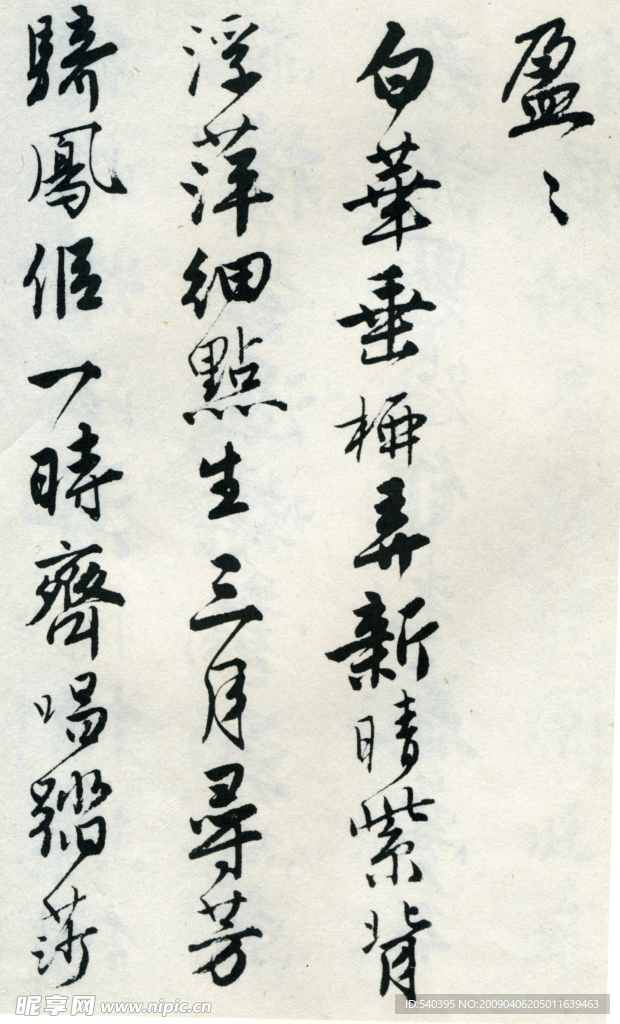 盈〻
白華垂柵弄新晴紫背
浮萍細點生三月尋芳
鳳侶一時齊唱踏莎
昵享网 www.nipic.cn
ID:540395 NO:20090406205011639463